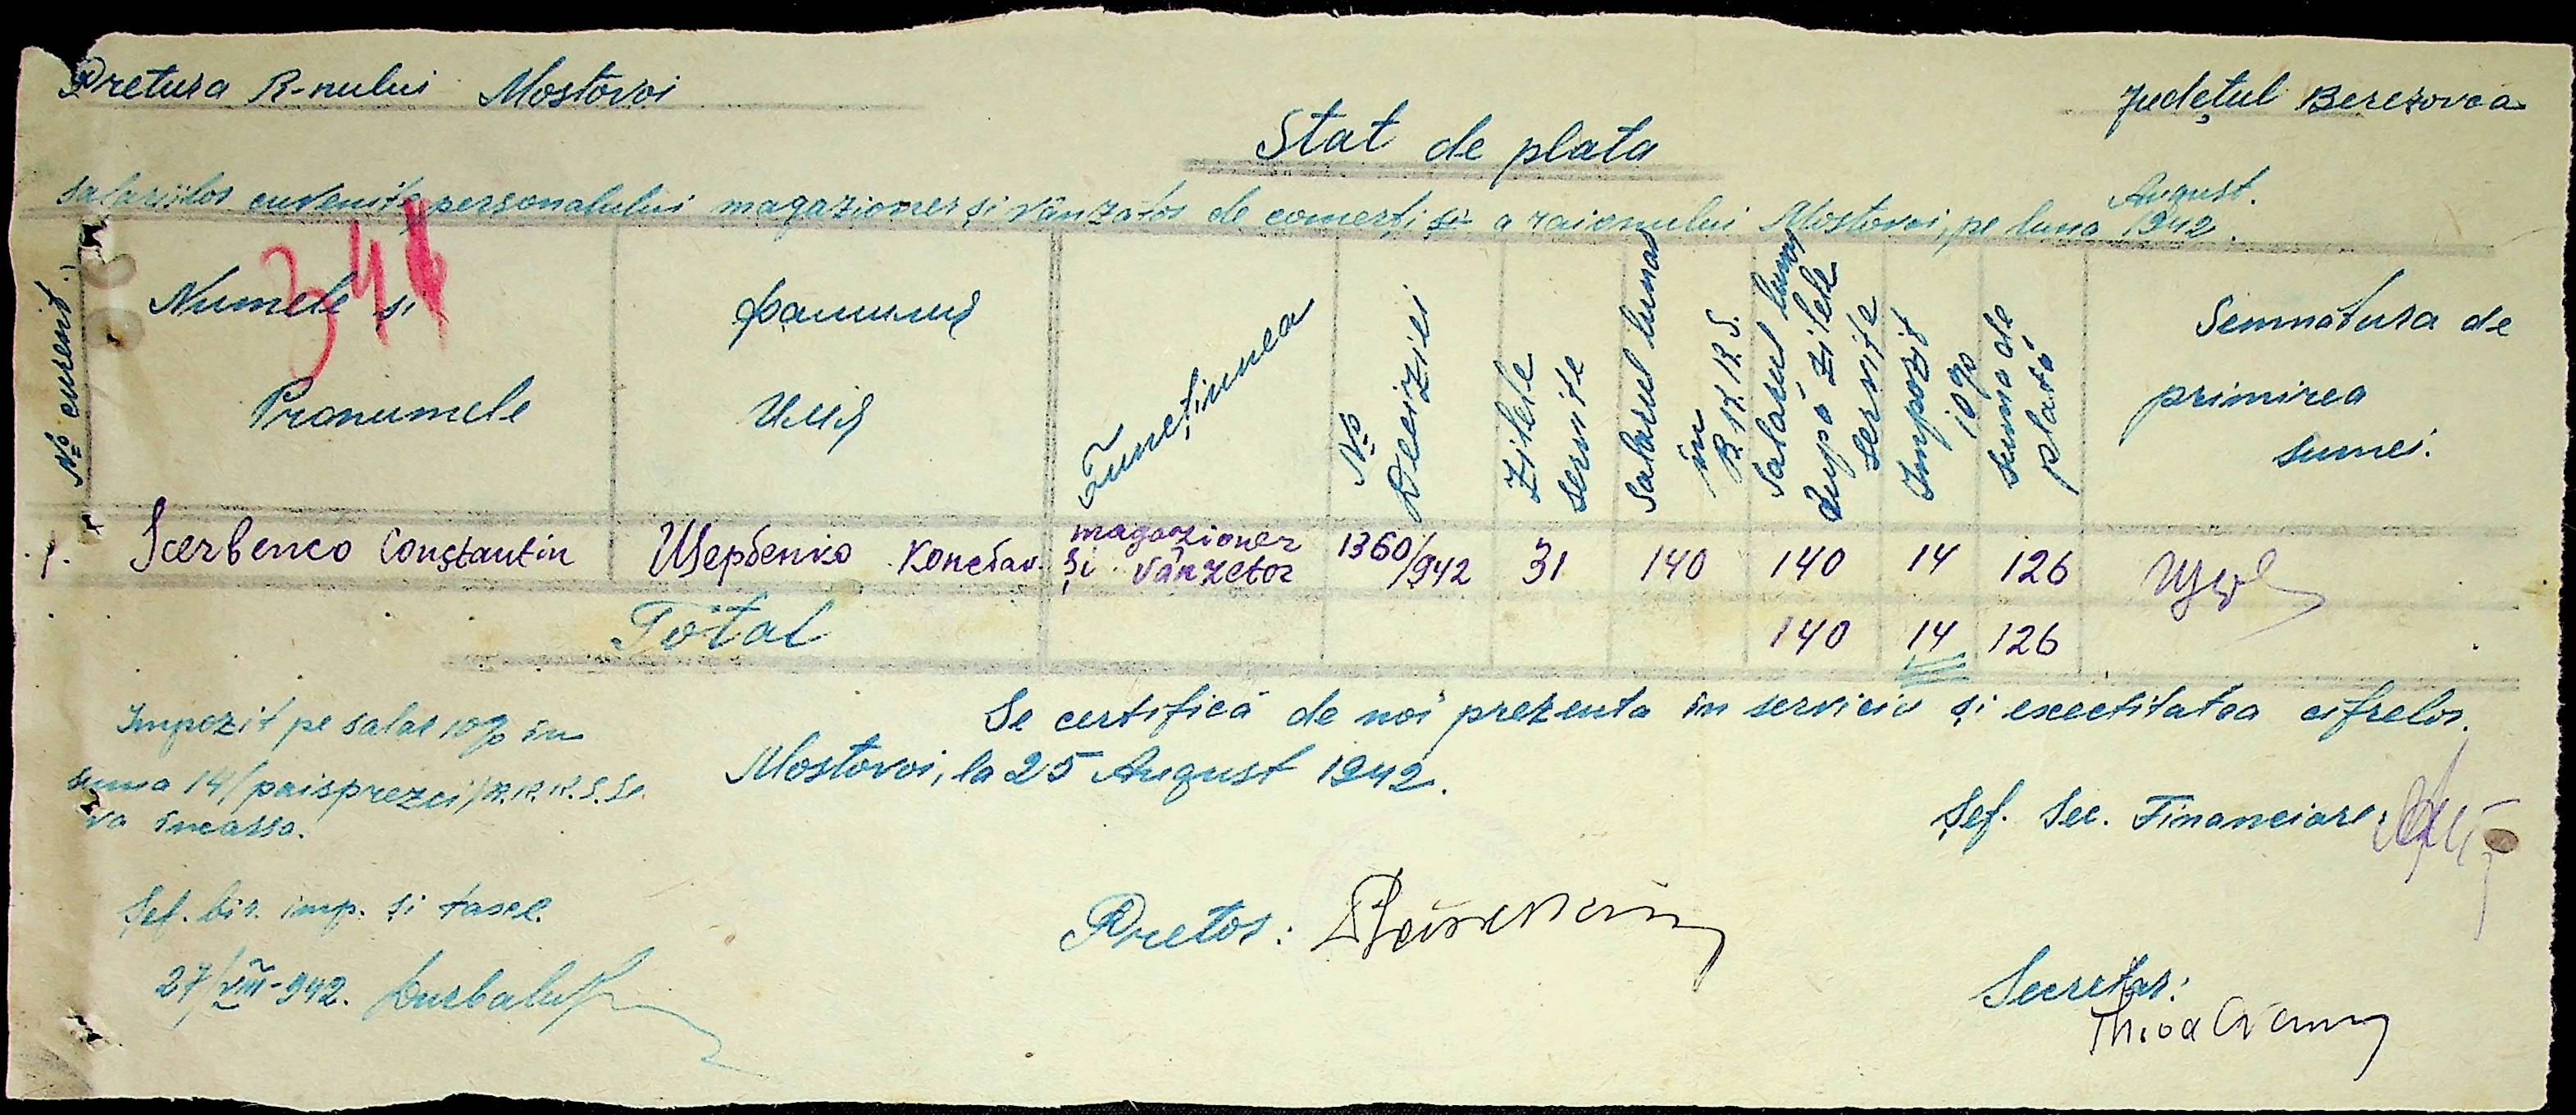 Pretura R-nului Mostovoi
Județul Berezovca
Stat de plata
salariilor cuvenite personalului magazioner și vânzător de comerț și a raionului Mostovoi, pe luna August 1942.
346
No curent.
Numele si
Pronumele
Фамилия
Имя
Funcțiunea
No Deciziei
Zilele servite
Salarul lunar în R.K.K.S.
Salarul lunar după zilele servite
Impozit 10%
Suma de plată
Semnatura de
primirea
sumei.
1. Scerbenco Constantin Щербенко Констан. magazioner și vânzetor 1360/942 31 140 140 14 126
Total 140 14 126
Se certifică de noi prezenta în serviciu și exectitatea cifrelor.
Mostovoi, la 25 August 1942.
Impozit pe salar 10% în
suma 14/paisprezci/R.K.K.S. se
va incassa.
Șef. bir. imp. și taxel.
27/VIII-942.
Șef. Sec. Financiare:
Pretor:
Secretar: